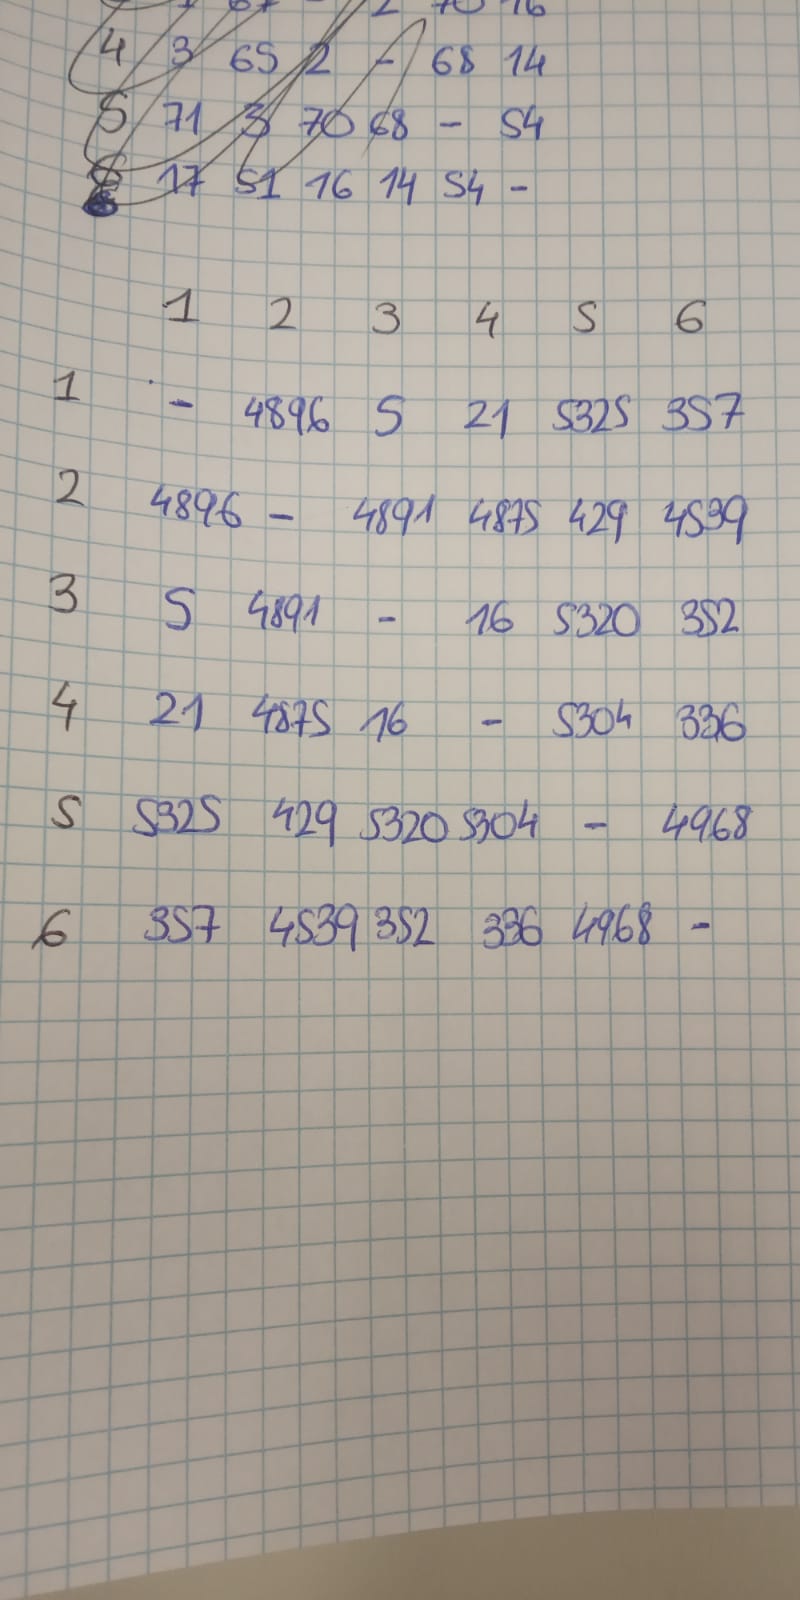 67 - 2 70 16
4 3 65 2 - 68 14
5 71 3 70 68 - 54
17 51 16 14 54 -
1 2 3 4 5 6
1 - 4896 5 21 5325 357
2 4896 - 4891 4875 429 4539
3 5 4891 - 16 5320 352
4 21 4875 16 - 5304 336
5 5325 429 5320 5304 - 4968
6 357 4539 352 336 4968 -